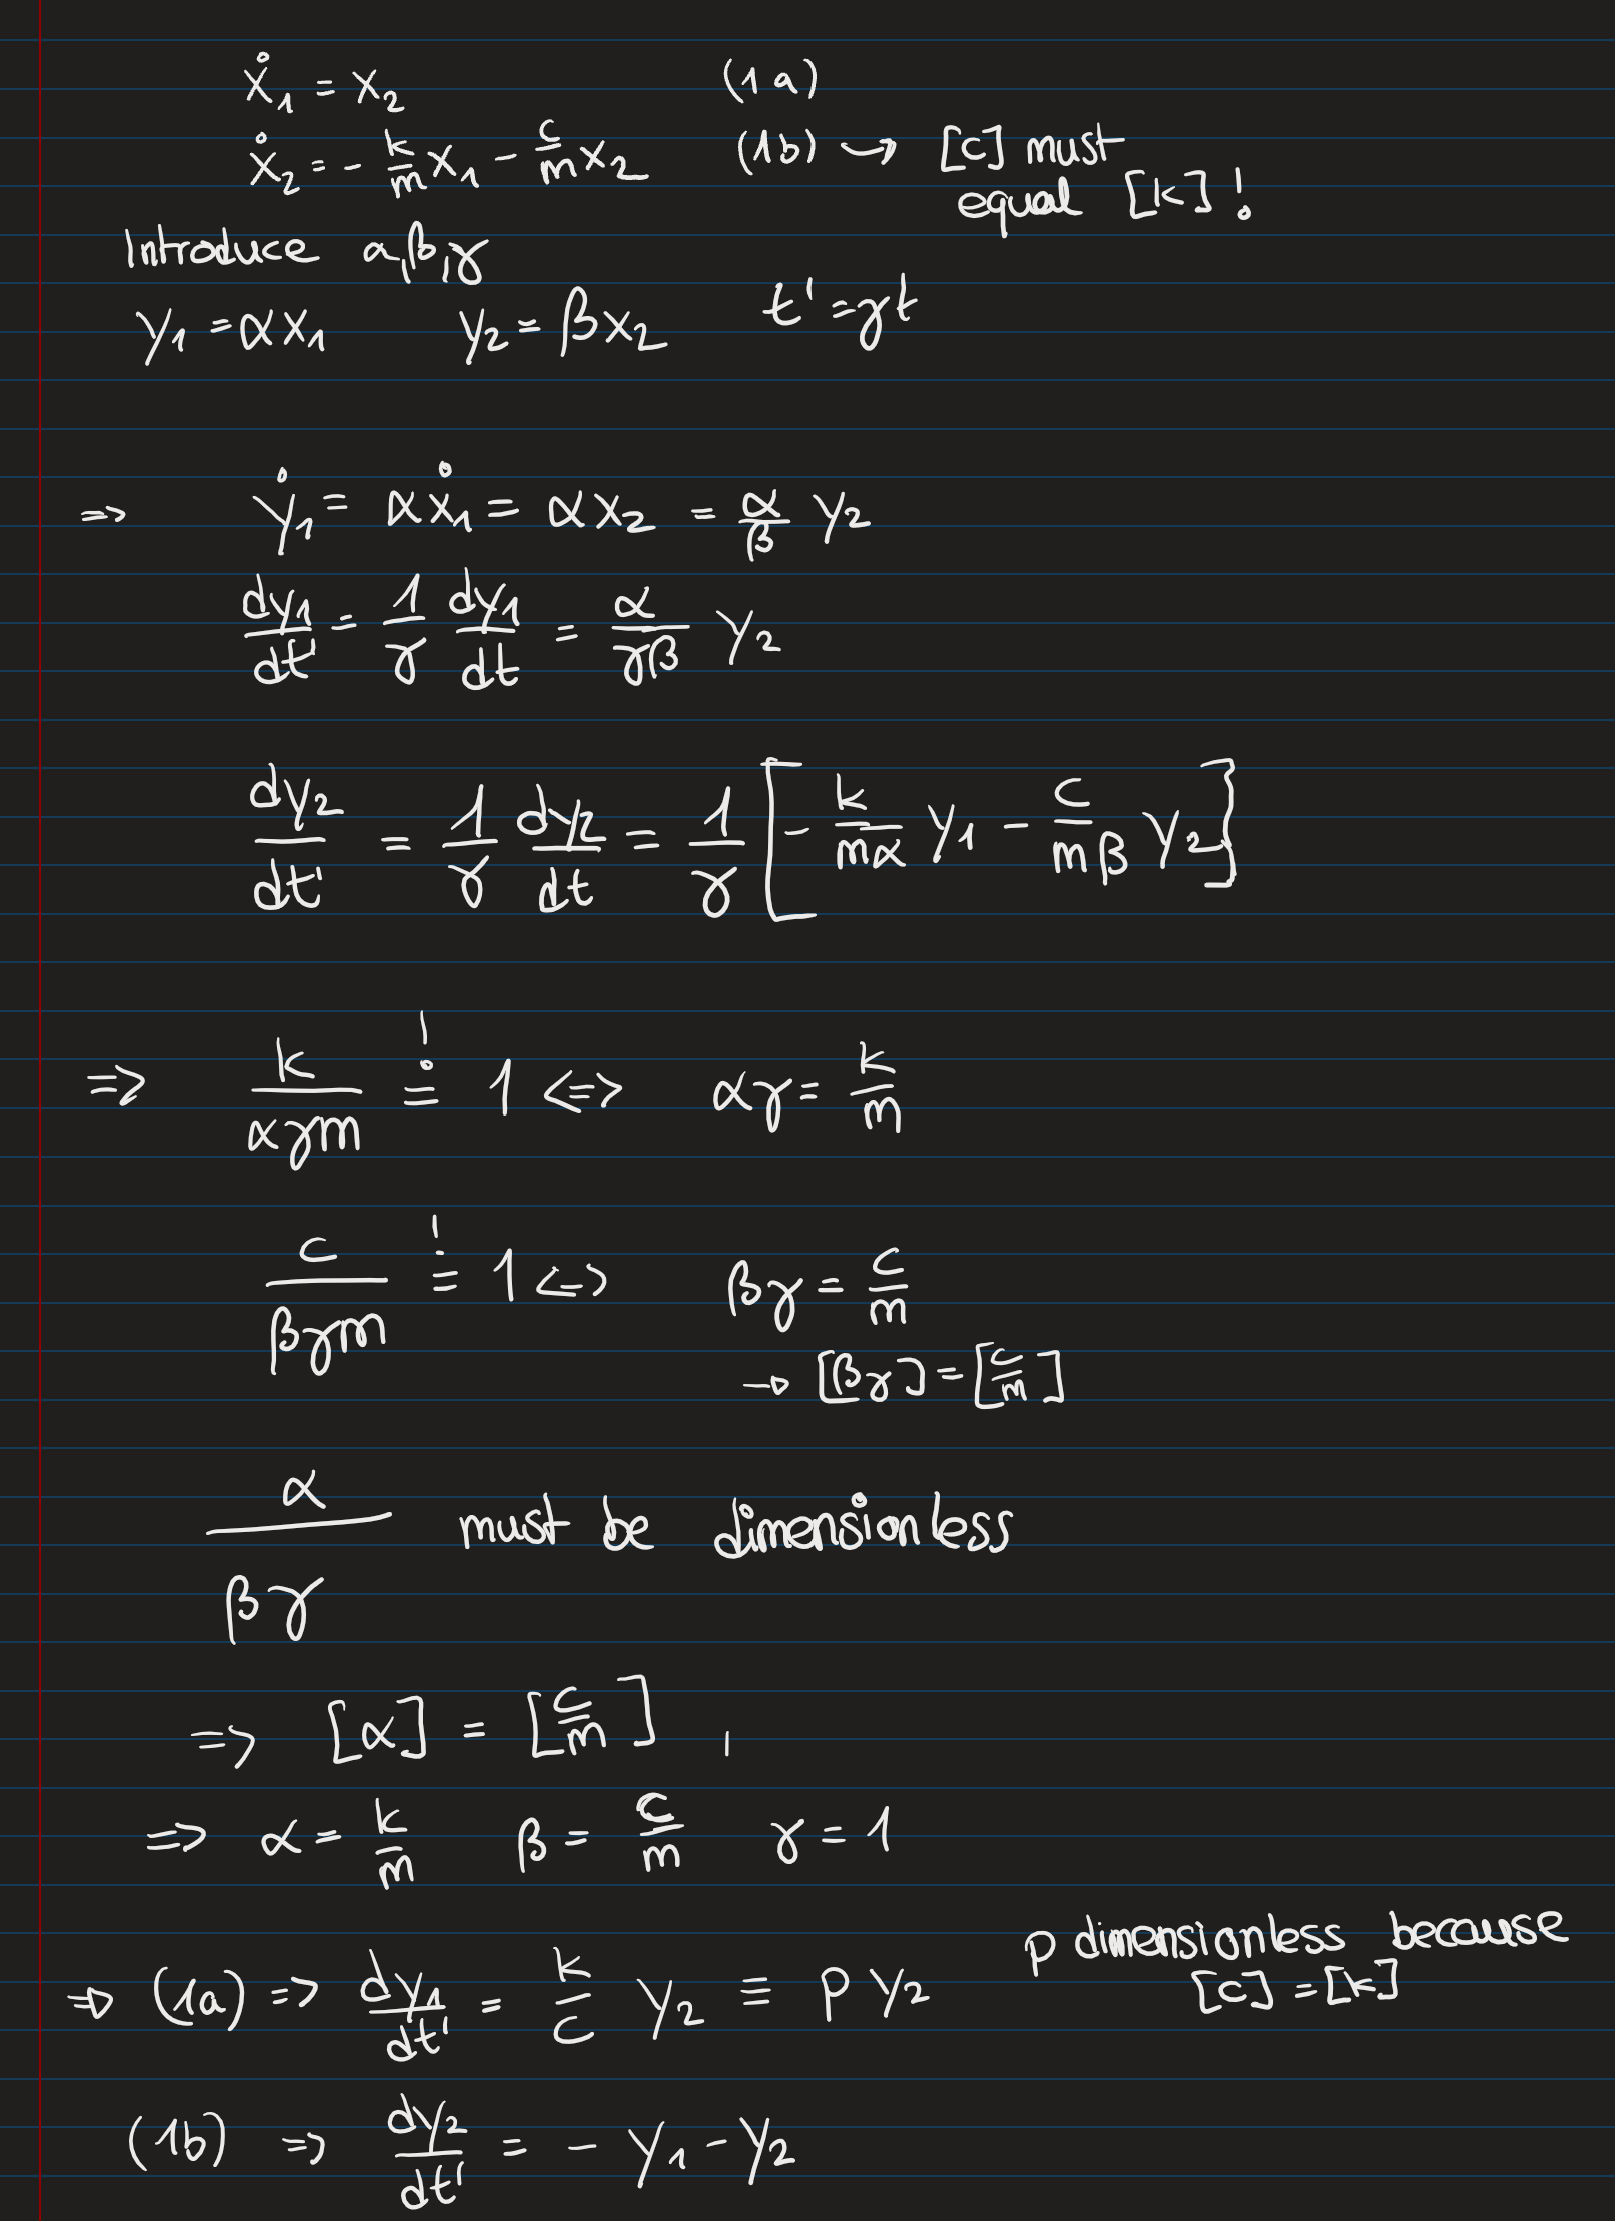 ẋ₁ = x₂ (1a)
ẋ₂ = - k/m x₁ - c/m x₂ (1b) → [c] must
equal [k]!
Introduce α,β,γ
y₁ = αx₁ y₂ = βx₂ t' = γt
=> ẏ₁ = αẋ₁ = αx₂ = α/β y₂
dy₁/dt' = 1/γ dy₁/dt = α/(γβ) y₂
dy₂/dt' = 1/γ dy₂/dt = 1/γ [- k/(mα) y₁ - c/(mβ) y₂]
=> k/(αγm) =! 1 <=> αγ = k/m
c/(βγm) =! 1 <=> βγ = c/m
→ [βγ] = [c/m]
α/(βγ) must be dimensionless
=> [α] = [c/m] ,
=> α = k/m β = c/m γ = 1
p dimensionless because
[c] = [k]
=> (1a) => dy₁/dt' = k/c y₂ ≡ p y₂
(1b) => dy₂/dt' = - y₁ - y₂